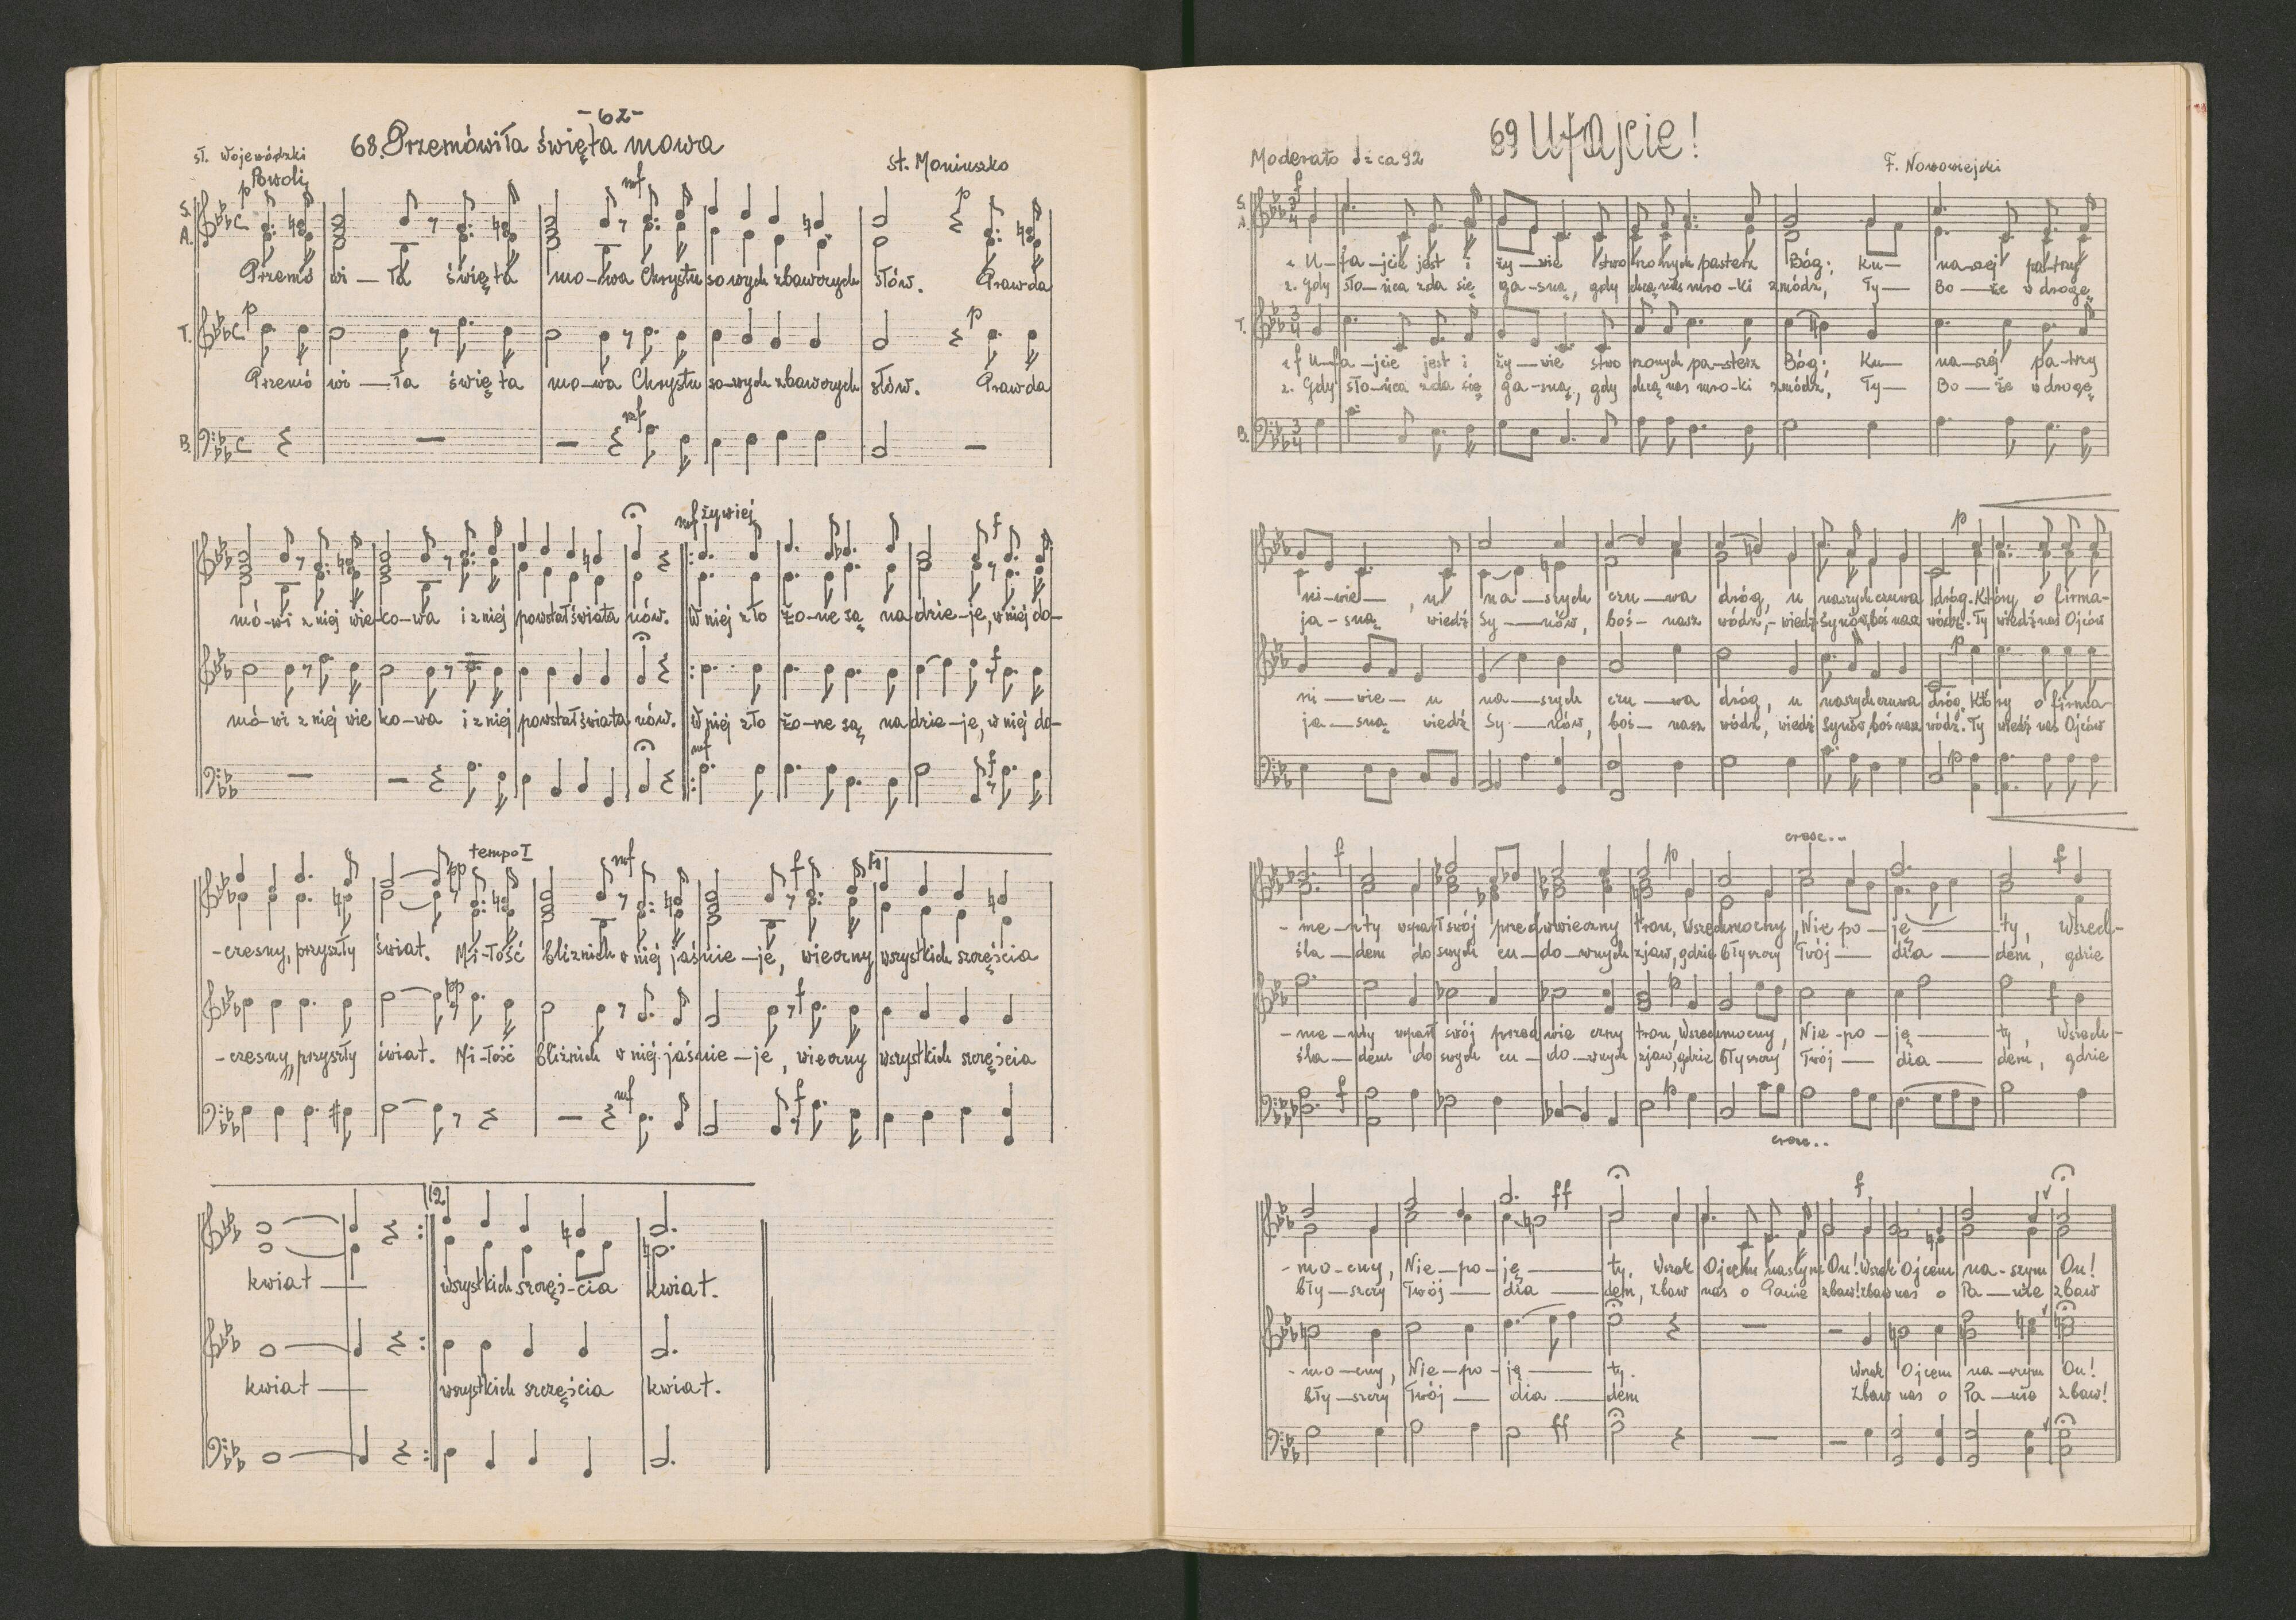 -62-
68. Przemówiła święta mowa
sł. Wojewódzki
St. Moniuszko
Powoli
p mf p
S.
A.
Przemó wi—ła świę ta mo-wa Chrystu so wych zbawczych słów. Prawda
p p
T.
Przemó wi—ła świę ta mo-wa Chrystu so-wych zbawczych słów. Prawda
mf
B.
mf żywiej f
mó-wi z niej wie-ko-wa i z niej powstał świata nów. W niej zło żo-ne są na dzie-je, w niej do-
f
mó-wi z niej wie ko-wa i z niej powstał świata nów. W niej zło żo-ne są na dzie-je, w niej do-
mf f
tempo I
pp mf f 1.
-czesny, przyszły świat. Mi-łość bliźnich w niej jaśnie-je, wieczny wszystkich szczęścia
pp f
-czesny, przyszły świat. Mi-łość bliźnich w niej jaśnie-je, wieczny wszystkich szczęścia
mf f
2
kwiat— wszystkich szczęś-cia kwiat.
kwiat— wszystkich szczęścia kwiat.
69 Ufajcie!
Moderato ♩ = ca 92
F. Nowowiejski
f
S.
A.
1. U-fa-jcie jest i ży-wie stwo rzonych pasterz Bóg; ku— na-szej pa-trzy
2. Gdy sło-ńca zda się ga-sną, gdy chcą nas mro-ki zmódz, Ty— Bo—że w drogę
T.
1. f U-fa-jcie jest i ży-wie stwo rzonych pa-sterz Bóg; Ku— na-szej pa-trzy
2. Gdy sło-ńca zda się ga-sną, gdy chcą nas mro-ki zmódz, Ty— Bo—że w drogę
B.
p
ni-wie—, u na—szych czu—wa dróg, u naszych czuwa dróg. Który o firma-
ja-sną wiedź Sy—nów, boś— nasz wódz,- wiedź Synów, boś nasz wódz. Ty wiedź nas Ojców
p
ni—wie— u na—szych czu—wa dróg, u naszych czuwa dróg. Któ ry o firma-
ja—sną wiedź Sy—nów, boś— nasz wódz, wiedź Synów, boś nasz wódz. Ty wiedź nas Ojców
p
cresc..
f p f
-me-nty wparł swój przedwieczny tron, Wszechmocny, Nie po—ję—ty, Wszech-
śla—dem do swych cu-do-wnych zjaw, gdzie błyszczy Twój— dia—dem, gdzie
p f
-me-nty wparł swój przed wie czny tron, Wszechmocny, Nie-po-ję—ty, Wszech-
śla—dem do swych cu-do-wnych zjaw, gdzie błyszczy Twój— dia—dem, gdzie
f p
cresc..
ff f
-mo-cny, Nie-po-ję—ty, Wszak Ojcem naszym On! Wszak Ojcem na-szym On!
bły—szczy Twój— dia—dem, zbaw nas o Panie zbaw! zbaw nas o Pa—nie zbaw
-mo-cny, Nie-po-ję—ty. Wszak Ojcem na-szym On!
bły—szczy Twój— dia—dem Zbaw nas o Pa-nie zbaw!
ff